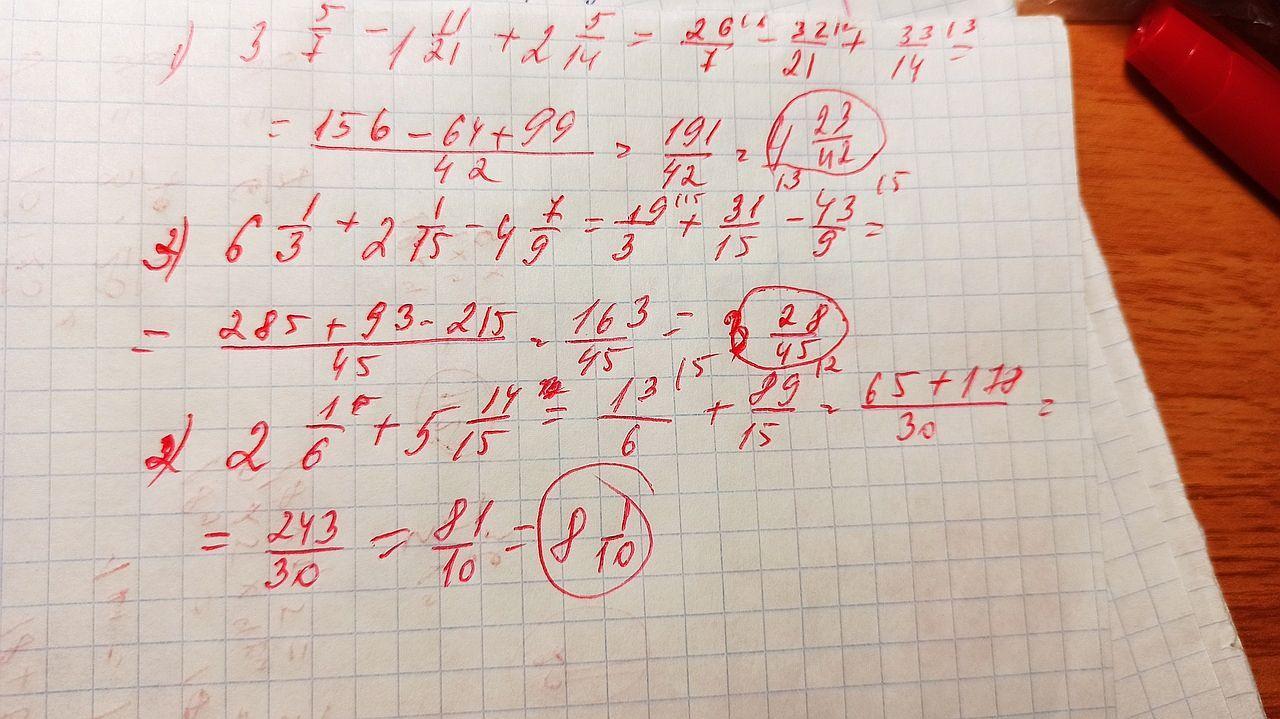 1) 3 5/7 - 1 11/21 + 2 5/14 = 26/7 - 32/21 + 33/14 =
= (156 - 64 + 99)/42 = 191/42 = 4 23/42
2) 6 1/3 + 2 1/15 - 4 7/9 = 19/3 + 31/15 - 43/9 =
= (285 + 93 - 215)/45 = 163/45 = 3 28/45
2) 2 1/6 + 5 14/15 = 13/6 + 89/15 = (65 + 178)/30 =
= 243/30 = 81/10 = 8 1/10